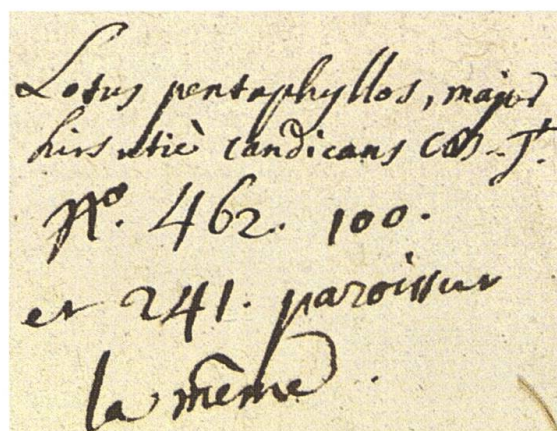 Lotus pentaphyllos, major
hirsutiè candicans CB-T.
N°. 462. 100.
et 241. paroissent
la même.